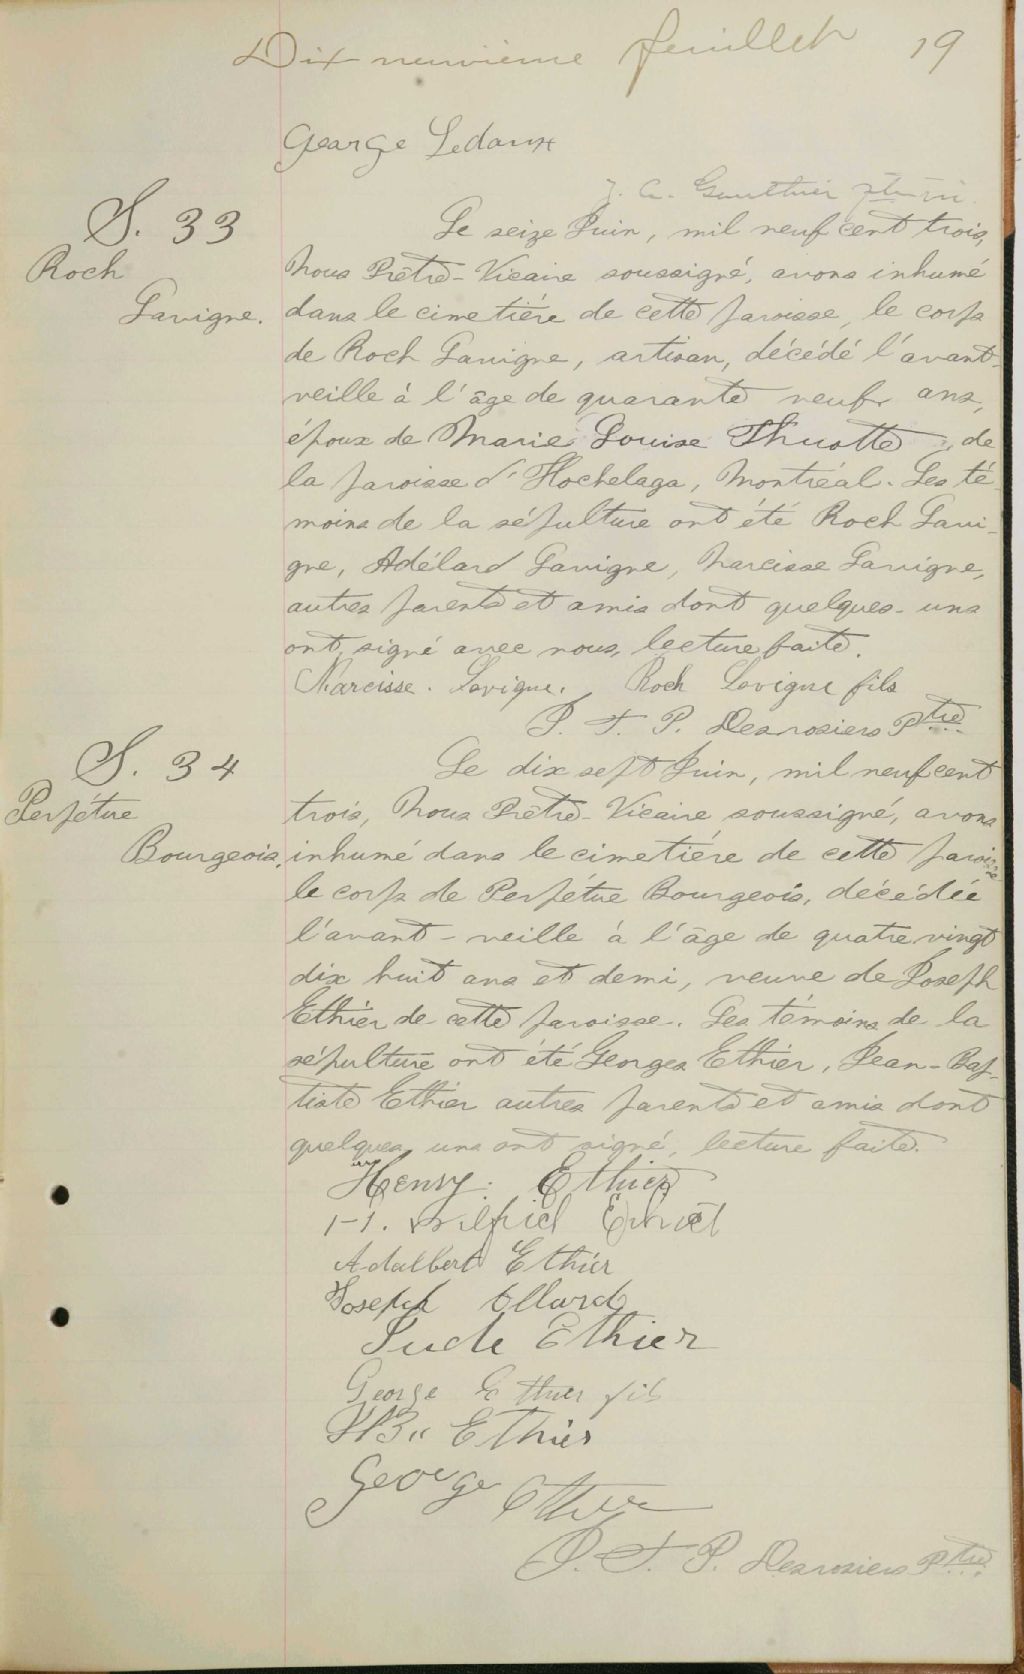 Dix neuvième feuillet 19
George Ledoux
J. A. Gauthier ptre
S. 33
Roch
Lavigne.
Le seize Juin, mil neuf cent trois,
Nous Prêtre-Vicaire soussigné, avons inhumé
dans le cimetière de cette paroisse, le corps
de Roch Lavigne, artisan, décédé l'avant-
veille à l'âge de quarante neuf ans,
époux de Marie Louise Thuotte, de
la paroisse d'Hochelaga, Montréal. Les té-
moins de la sépulture ont été Roch Lavi-
gne, Adélard Lavigne, Narcisse Lavigne,
autres parents et amis dont quelques-uns
ont signé avec nous, lecture faite.
Narcisse. Lavigne. Roch Lavigne fils
J. T. P. Desrosiers Ptre
S. 34
Perpétue
Bourgeois,
Le dix sept Juin, mil neuf cent
trois, Nous Prêtre-Vicaire soussigné, avons
inhumé dans le cimetière de cette paroisse
le corps de Perpétue Bourgeois, décédée
l'avant-veille à l'âge de quatre vingt
dix huit ans et demi, veuve de Joseph
Ethier de cette paroisse. Les témoins de la
sépulture ont été Georges Ethier, Jean-Bap-
tiste Ethier autres parents et amis dont
quelques uns ont signé, lecture faite.
Henry. Ethier
Wilfrid
Adalbert Ethier
Joseph Allard
Jude Ethier
George Ethier fils
JB Ethier
George Ethier
J. T. P. Desrosiers Ptre